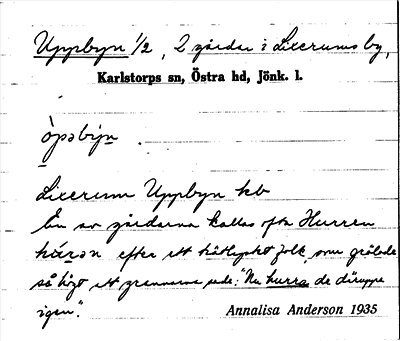 Uppbyn 1/2, 2 gårdar i Lixerums by,
Karlstorps sn, Östra hd, Jönk. l.
òpəbýn.
Lixerum Uppbyn kb
En av gårdarna kallas ofta Hurren
húrən efter ett folk, som grälade
så högt att grannarna sade: "Nu hurra de däruppe
igen".
Annalisa Anderson 1935